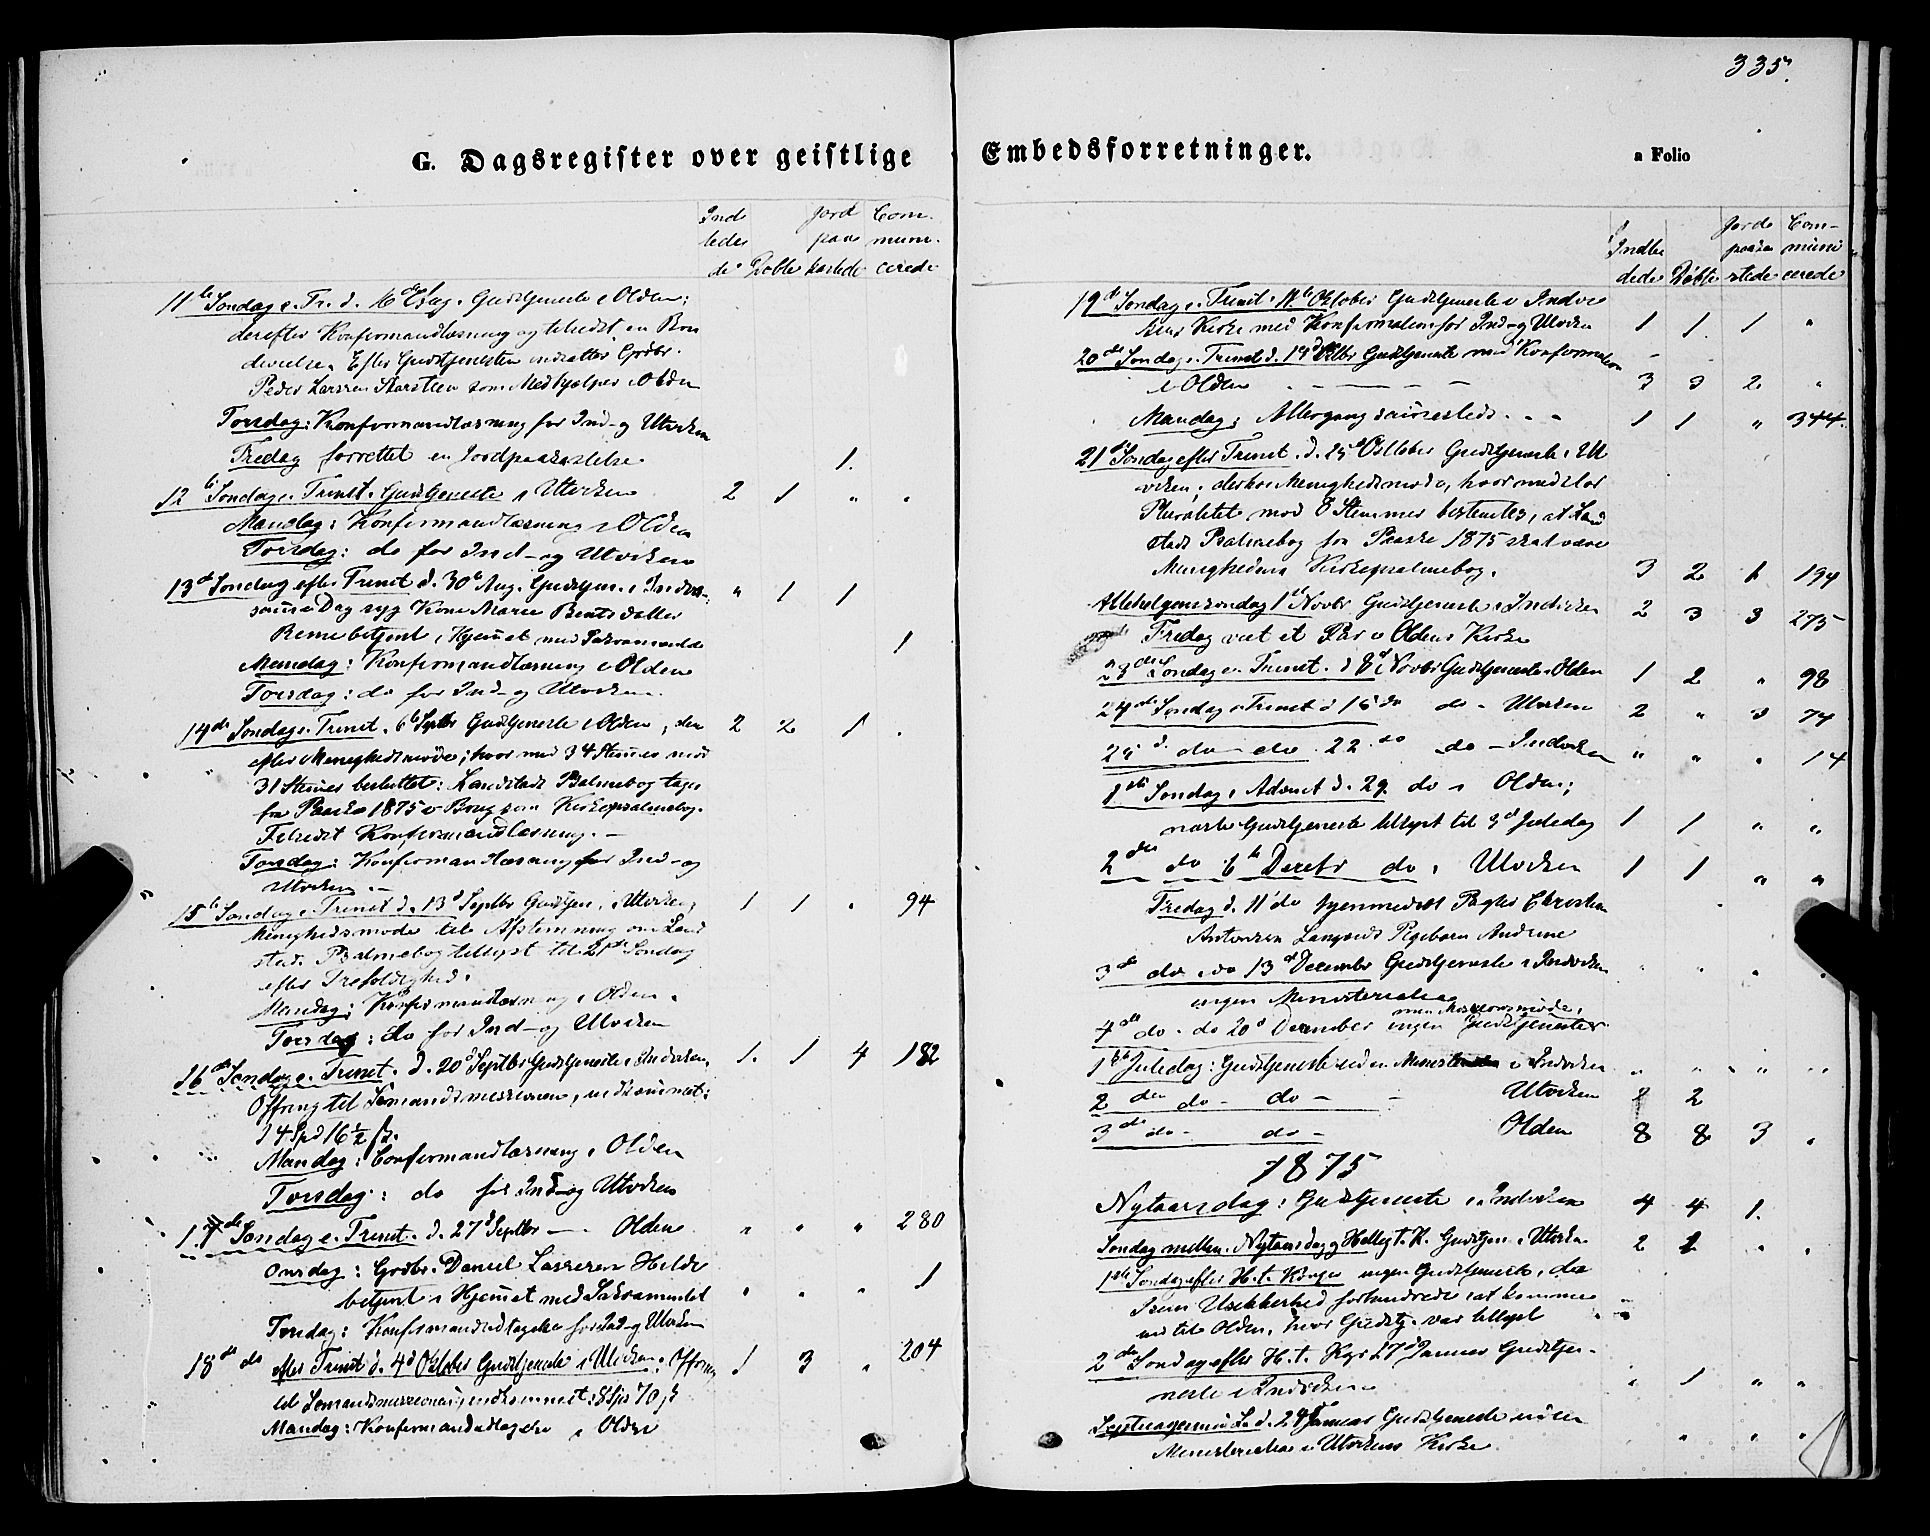 335.
G. Dagsregister over geistlige Embedsforretninger.
a Folio
Ind
ledede Døbte
Jord
paa
kastede
Com-
muni-
cerede
11te Søndag e. Tr. d. 16de Aug. Gudstjeneste i Olden;
derefter Konfirmandlæsning og tilsidst en
Efter Gudstjenesten indsattes Grdbr.
Peder Larssen som Medhjælper i Olden
Torsdag: Konfirmandlæsning for Ind- og Utviken
Fredag forrettet en Jordpaakastelse 1.
12te Søndag e. Trinit. Gudstjeneste i Utviken 2 1 " "
Mandag: Konfirmandlæsning i Olden
Torsdag: do for Ind- og Utviken
13de Søndag efter Trinit d. 30te Aug. Gudstjen. i Indvik; " 1 1
samme Dag syg Kone Marie Bentsdatter
betjent i Hjemmet med Sakramentet 1
Mandag: Konfirmandlæsning i Olden
Torsdag: do for Ind- og Utviken.
14de Søndag e. Trinit. 6te Septbr Gudstjeneste i Olden; der 2 2 1 .
efter Menighedsmøde; hvor med 34 Stemmer mod
31 Stemmer besluttet: Landstads Psalmebog tages
fra Paaske 1875 i Brug som Kirkepsalmebog.
Tilsidst Konfirmandlæsning. —
Torsdag: Konfirmandlæsning for Ind- og
Utviken —
15te Søndag e. Trinit d. 13d Septbr Gudstjen. i Utviken; 1 1 . 94
Menighedsmøde til Afstemning om Land
stads Psalmebog tillyst til 21de Søndag
efter Trefoldighed.
Mandag: Konfirmandlæsning i Olden.
Torsdag: do for Ind- og Utviken
16de Søndag e. Trinit. d. 20d Septbr Gudstjeneste i Indviken, 1. 1 4 182
Offring til Sømandsmissionen, indkommet:
4 Spd 16½ ß.
Mandag: Confirmandlæsning i Olden
Torsdag: do for Ind- og Utviken
17de Søndag e. Trinit. d. 27d Septbr — Olden " " " 280
Onsdag: Grdbr. Daniel Lassesen Hilde
betjent i Hjemmet med Sakramentet " " " 1
Torsdag: Konfirmandudtagelse for Ind- og Utviken
18de do efter Trinit d. 4d Oktober Gudstjeneste i Utviken. Offring 1 3 " 204
til Sømandsmissionen; indkommet: 8 Spd 70 ß
Mandag: Konfirmandudtagelse i Olden
Indle
dede Døbte
Jords
paaka
stede
Com-
muni
cerede
19de Søndag e. Trinit. 11te Oktober Gudstjeneste i Indvi
kens Kirke med Konfirmation for Ind- og Utviken 1 1 1 "
20de Søndag e. Trinit d. 18d Oktbr Gudstjeneste med Konfirmation
i Olden — — — 3 3 2 "
Mandag: Altergang sammesteds. . . 1 1 " 344.
21de Søndag efter Trinit. d. 25d Oktober Gudstjeneste i Ut
viken; derhos Menighedsmøde, hvor med stor
Pluralitet mod 8 Stemmer bestemtes, at Land
stads Psalmebog fra Paaske 1875 skal være
Menighedens Kirkepsalmebog. 3 2 1 194
Allehelgenssøndag 1ste Novbr Gudstjeneste i Indviken 2 3 3 275
Fredag viet et Par i Oldens Kirke
23de Søndag e. Trinit. d 8de Novbr Gudstjeneste i Olden 1 2 " 98
24de Søndag e. Trinit d 15 do do — Utviken 2 " 3 74
25d. do do 22. do do — Indviken " " . 14
1ste Søndag i Advent d. 29 do i Olden;
næste Gudstjeneste tillyst til 3d Juledag 1 1 " "
2den do 6te Decbr do i Utviken 1 1 " "
Fredag d. 11 do hjemmedøbt Christen
Antonsen Pigebarn Andrine
3de do do 13d December Gudstjeneste i Indviken " " . .
ingen Ministerialia
4de do — do 20d December ingen Gudstjeneste men Missionsmøde.
1ste Juledag: Gudstjeneste uden i Indviken " " " "
2den do — do — Utviken 2 2
3de do — do — Olden 8 8 3 .
1875
Nytaarsdag: Gudstjeneste i Indviken 4 4 1.
Søndag mellem Nytaarsdag og Hellig t. K. Gudstjen. i Utviken 2 1 . .
1ste Søndag efter H. t. Konger ingen Gudstjeneste, da
Isens Usikkerhed forhindrede at komme
ud til Olden, hvor Gudstj. var tillyst
2de Søndag efter H. t. Kgr 17d Januar Gudstje-
neste i Indviken . 1 " "
Septuagesima S. d. 24 Januar Gudstjeneste uden
Ministerialia i Utvikens Kirke " . . .